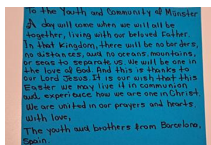 To the Youth and Community of Münster
A day will come when we will all be
together, living with our beloved Father.
In that Kingdom, there will be no borders,
no distances, and no oceans, mountains,
or seas to separate us. We will be one in
the love of God. And this is thanks to
our Lord Jesus. It is our wish that this
Easter we may live it in communion
and experience how we are one in Christ.
We are united in our prayers and hearts.
With love,
The youth and brothers from Barcelona,
Spain.